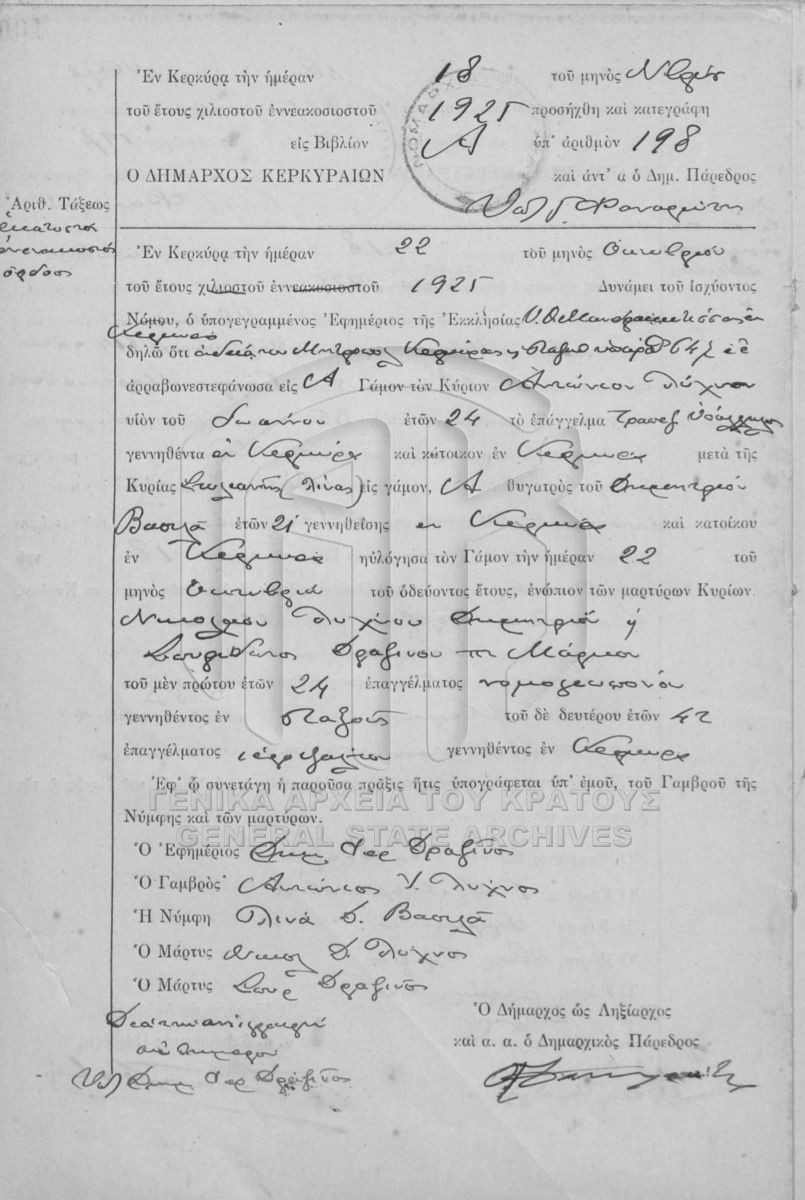 Ἐν Κερκύρᾳ τὴν ἡμέραν 18 τοῦ μηνὸς Νβρίου
τοῦ ἔτους χιλιοστοῦ ἐννεακοσιοστοῦ 1925 προσήχθη καὶ κατεγράφη
εἰς Βιβλίον Α ὑπ' ἀριθμὸν 198
Ο ΔΗΜΑΡΧΟΣ ΚΕΡΚΥΡΑΙΩΝ καὶ ἀντ' α ὁ Δημ. Πάρεδρος
Ἀριθ. Τάξεως
ἑκατοστὸς
ἐνενηκοστὸς
ὄγδοος
Ἐν Κερκύρᾳ τὴν ἡμέραν 22 τοῦ μηνὸς Ὀκτωβρίου
τοῦ ἔτους χιλιοστοῦ ἐννεακοσιοστοῦ 1925 Δυνάμει τοῦ ἰσχύοντος
Νόμου, ὁ ὑπογεγραμμένος Ἐφημέριος τῆς Ἐκκλησίας Υ. Θ.
Κερκύρας
δηλῶ ὅτι ἀδείᾳ του Μητροπ. Κερκύρας
ἀρραβωνεστεφάνωσα εἰς Α Γάμον τὸν Κύριον Ἀντώνιον Λύχνον
υἱὸν τοῦ Ἰωάννου ἐτῶν 24 τὸ ἐπάγγελμα Τραπεζ. Ὑπάλληλος
γεννηθέντα ἐν Κερκύρᾳ καὶ κάτοικον ἐν Κερκύρᾳ μετὰ τῆς
Κυρίας Στυλιανῆς (Λίνας) εἰς γάμον, Α θυγατρὸς τοῦ Δημητρίου
Βασιλᾶ ἐτῶν 21 γεννηθείσης ἐν Κερκύρᾳ καὶ κατοίκου
ἐν Κερκύρᾳ ηὐλόγησα τὸν Γάμον τὴν ἡμέραν 22 τοῦ
μηνὸς Ὀκτωβρίου τοῦ ὁδεύοντος ἔτους, ἐνώπιον τῶν μαρτύρων Κυρίων.
Νικολάου Λύχνου Δημητρίου ἡ
Σπυρίδωνος Δραζίνου του Μάρκου
τοῦ μὲν πρώτου ἐτῶν 24 ἐπαγγέλματος
γεννηθέντος ἐν Παξοῖς τοῦ δὲ δευτέρου ἐτῶν 42
ἐπαγγέλματος γεννηθέντος ἐν Κερκύρᾳ
Ἐφ' ᾧ συνετάγη ἡ παροῦσα πρᾶξις ἥτις ὑπογράφεται ὑπ' ἐμοῦ, τοῦ Γαμβροῦ τῆς
Νύμφης καὶ τῶν μαρτύρων.
ΓΕΝΙΚΑ ΑΡΧΕΙΑ ΤΟΥ ΚΡΑΤΟΥΣ
GENERAL STATE ARCHIVES
Ὁ Ἐφημέριος Δημ. Ἱερ. Δραζῖνος
Ὁ Γαμβρὸς Ἀντώνιος Ι. Λύχνος
Ἡ Νύμφη Λίνα Δ. Βασιλᾶ
Ὁ Μάρτυς Νικολ. Δ. Λύχνος
Ὁ Μάρτυς Σπυρ. Δραζῖνος
Ὁ Δήμαρχος ὡς Ληξίαρχος
καὶ α. α. ὁ Δημαρχικὸς Πάρεδρος
Διὰ τὴν ἀντιγραφήν
Δημ. Ἱερ. Δραζῖνος